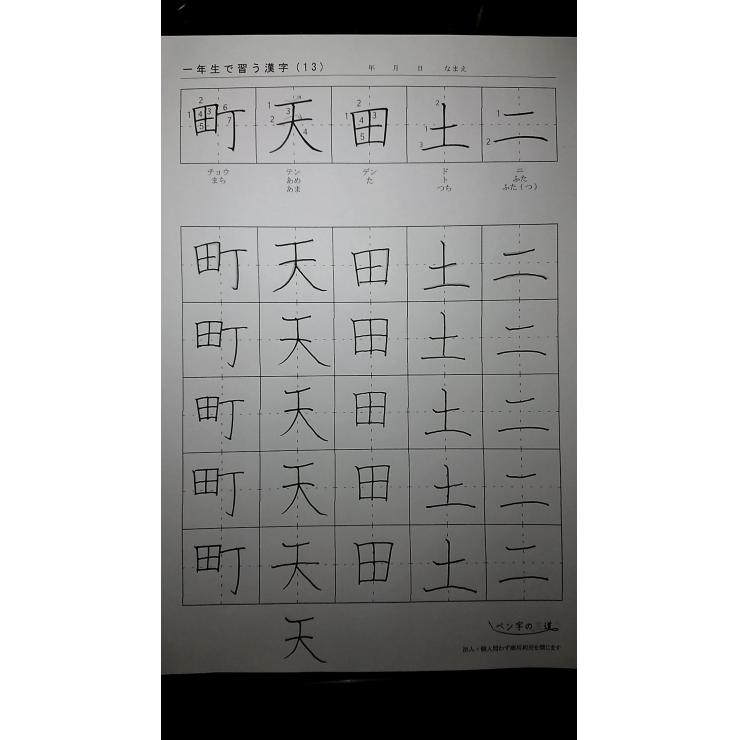 一年生で習う漢字(13) 年 月 日 なまえ
町 天 田 土 二
1 2 3 4 5 6 7 1 2 3 4 1 2 3 4 5 1 2 3 1 2
チョウ テン デン ド ニ
まち あめ た ト ふた
あま つち ふた(つ)
町 天 田 土 二
町 天 田 土 二
町 天 田 土 二
町 天 田 土 二
町 天 田 土 二
天
ペン字の三道
法人・個人問わず商用利用を禁じます